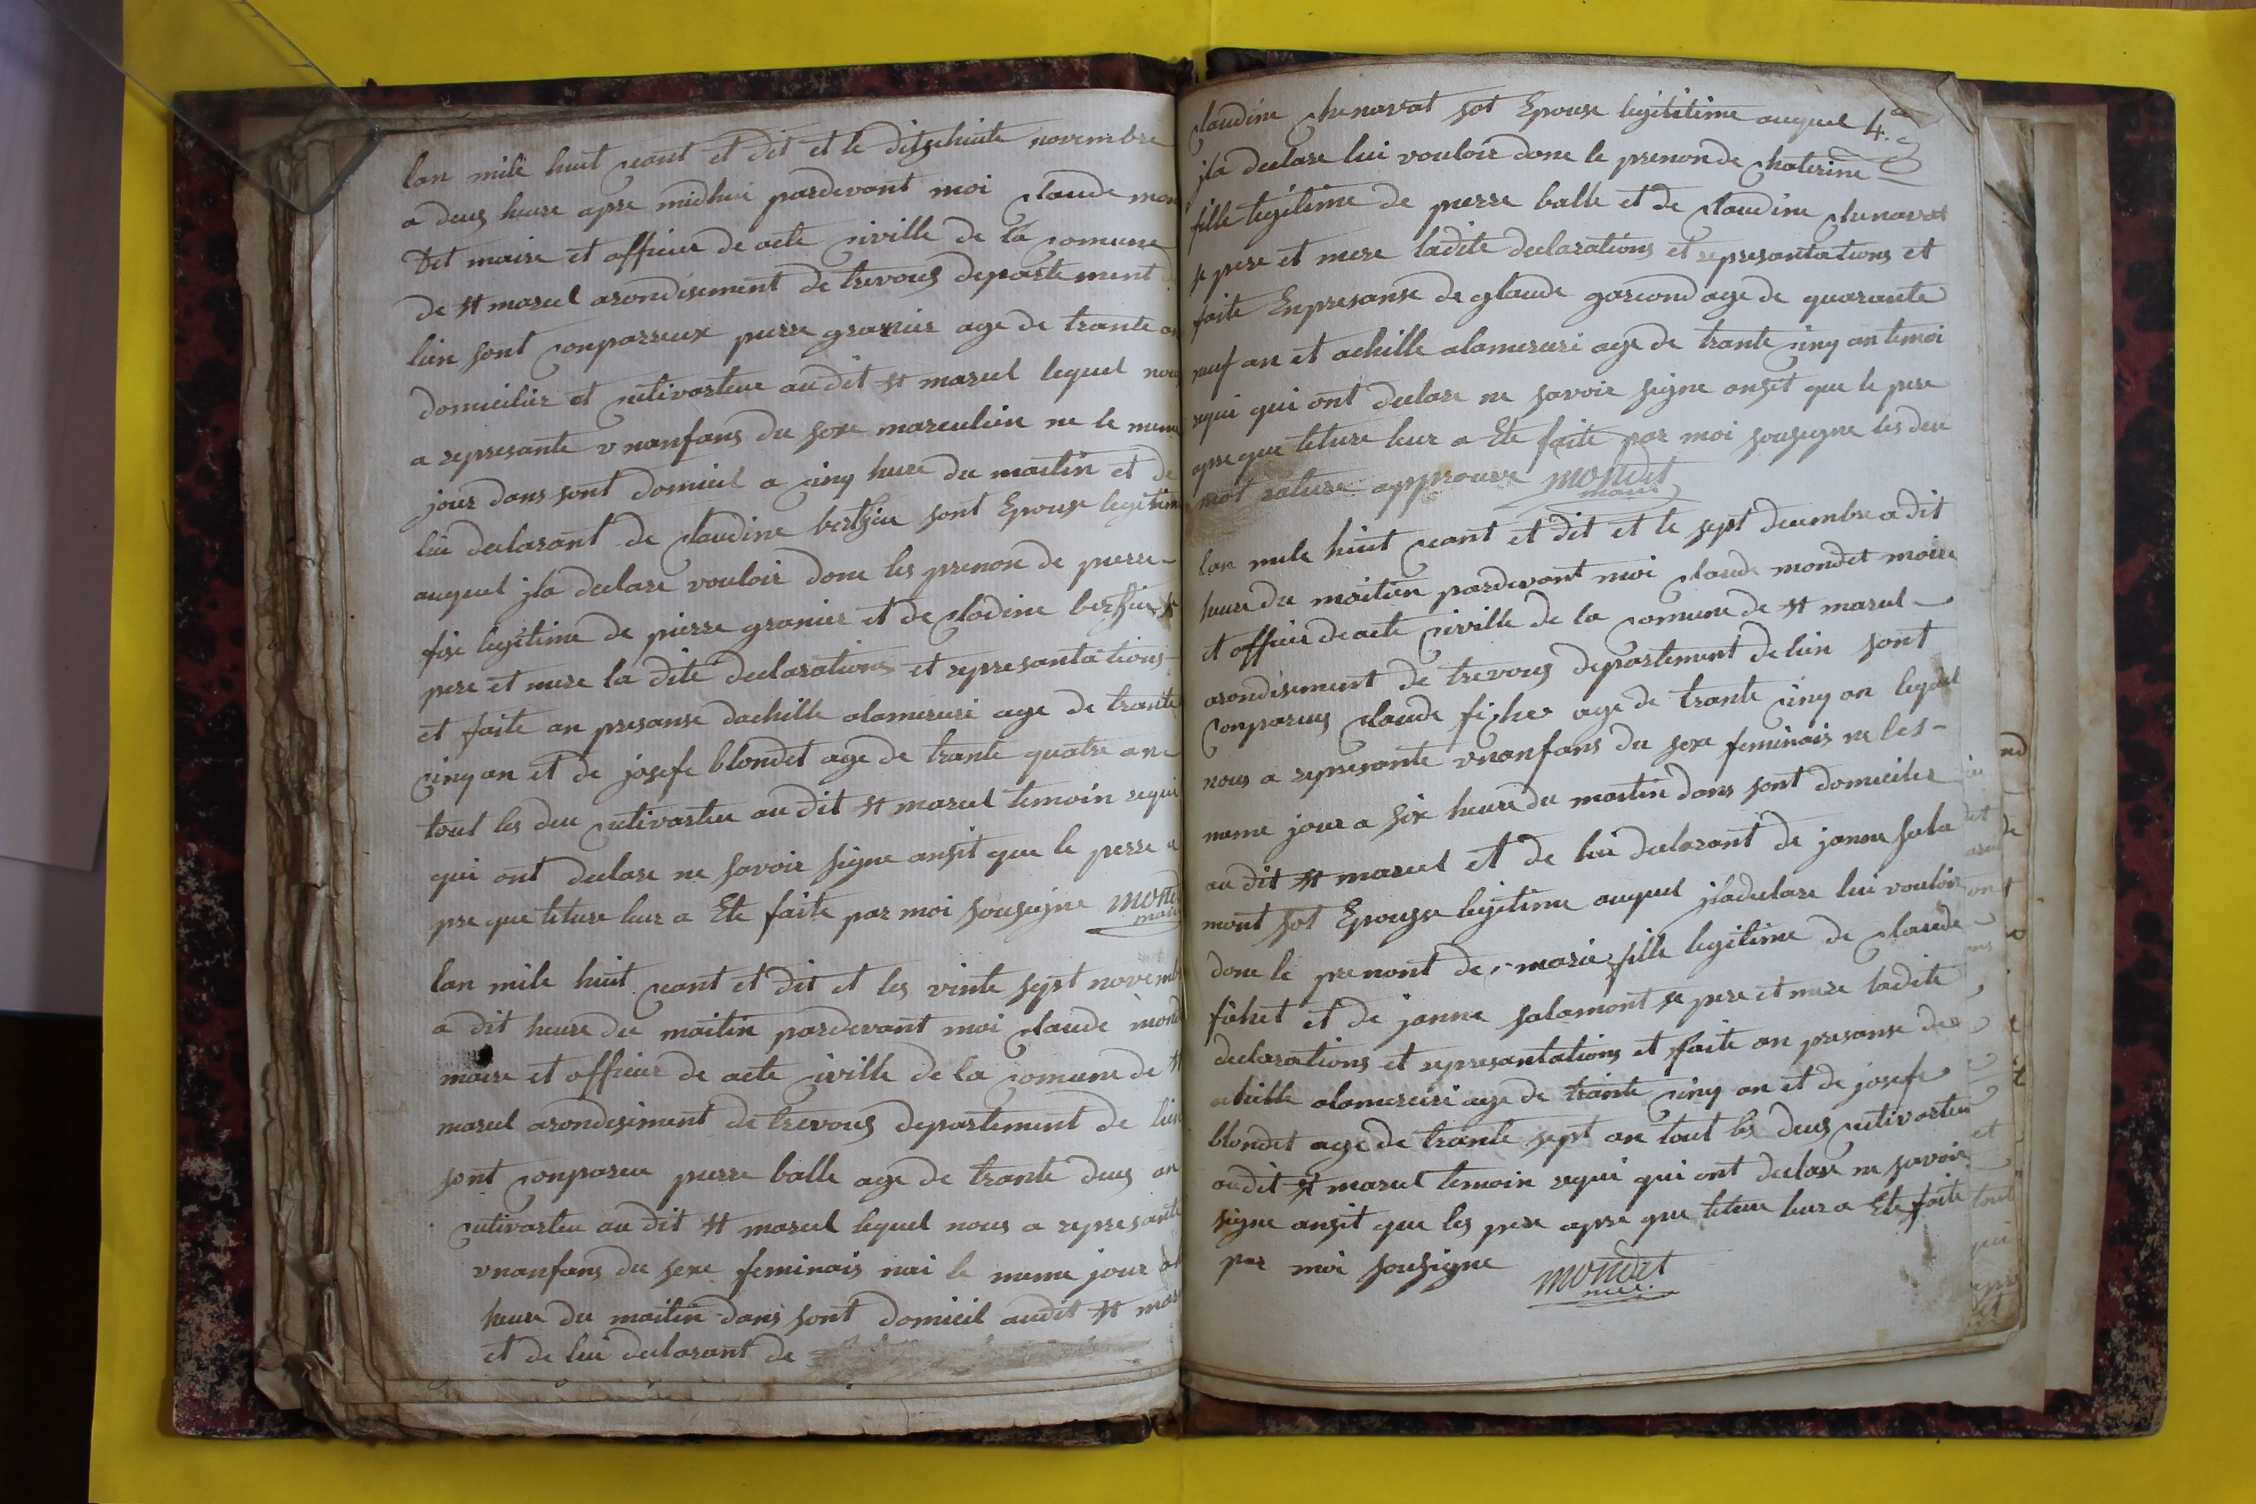 lan mile huit cant et dit et le ditzehuite novembre
a deus heure apre midhui pardevant moi claude mon
det maire et officier de acte civille de la comune
de st marcel arondisement de trevous departement d
lien sont conparreux pierre granier age de trante an
domicilier et cutivarteur au dit st marcel lequel nous
a represante vnanfans du sexe marculiin ne le meme
jour dans sont domicil a cinq hure du maitin et de
lui declarant de claudine berthier sont Epouse legitim
auquel jla declare vouloir done les prenon de pierre
fise legitime de pierre granier et de clodine berthier se
pere et mere la dite declarations et represantations
et faite an presanse dachille alamercuri age de trante
cinq an et de josefe blondet age de trante quatre an
tout les deu cutivarteu au dit st marcel temoin requi
qui ont declare ne savoir signe ansit que le perre a
pre que leture leur a Ete faite par moi sousigne mondet
maire
lan mile huit cant et dit et les vinte sept novemb
a dit heure du maitin pardevant moi claude mond
maire et officier de acte civille de la comune de st
marcel arondisiment de trevous departement de lien
sont conpareu pierre balle age de trante deus an
cutivarteu au dit st marcel lequel nous a represante
vnanfans du sexe feminais nai le meme jour a
heure du maitin dans sont domicil audit st mar
et de lui declarant de
claudine chenavat sot Epouse legititime auquel 4.
jla declare lui vouloir done le prenon de chaterine
fille legitime de pierre balle et de claudine chenavat
se pere et mere ladite declarations et represantations et
faite Enpresanse de glaude garcond age de quarante
neuf an et achille alamercuri age de trante cinq an temoi
requi qui ont declare ne savoir signe ansit que le pere
apre que leture leur a Ete faite par moi sousigne les deu
mot rature approuve mondet
maire
lan mile huit cant et dit et le sept decembre a dit
heure du maitien pardevant moi claude mondet maire
et officie de acte civille de la comune de st marcel
arondisement de trevous departement de lien sont
conparus claude fichet age de trante cinq an lequel
nous a represante vnanfans du sexe feminais ne les
meme jour a six heure du maitin dans sont domiciles
au dit st marcel et de lui declarant de janne sala
mont sot Epousse legitime auquel jladeclare lui vouloir
done le prenont de marie fille legitime de claude
fichet et de janne salamont se pere et mere ladite
declarations et represantations et faite an presanse de
achille alamercuri age de trante cinq an et de josefe
blondet age de trante sept an tout les deus cutivarteu
audit st marcel temoin requi qui ont declare ne savoir
signe ansit que les pere apre que leteur leur a Ete faite
par moi sousigne mondet